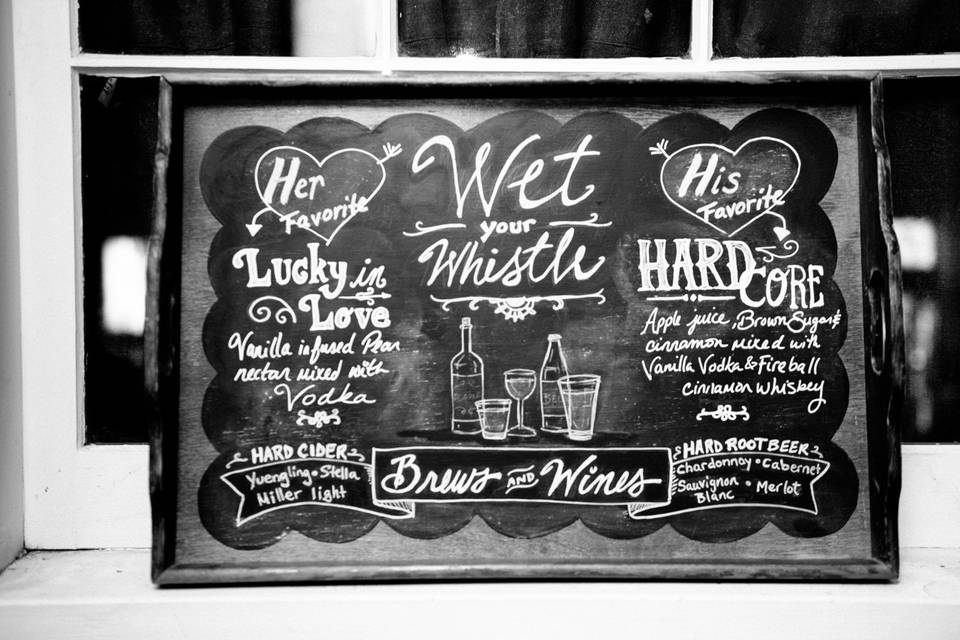 Her
Favorite
Lucky in
Love
Vanilla infused Pear
nectar mixed with
Vodka
Wet
your
Whistle
His
Favorite
HARD
CORE
Apple juice, Brown Sugar &
cinnamon mixed with
Vanilla Vodka & Fireball
cinnamon whiskey
HARD CIDER
Yuengling • Stella
Miller light
Brews AND Wines
HARD ROOTBEER
Chardonnay • Cabernet
Sauvignon • Merlot
Blanc